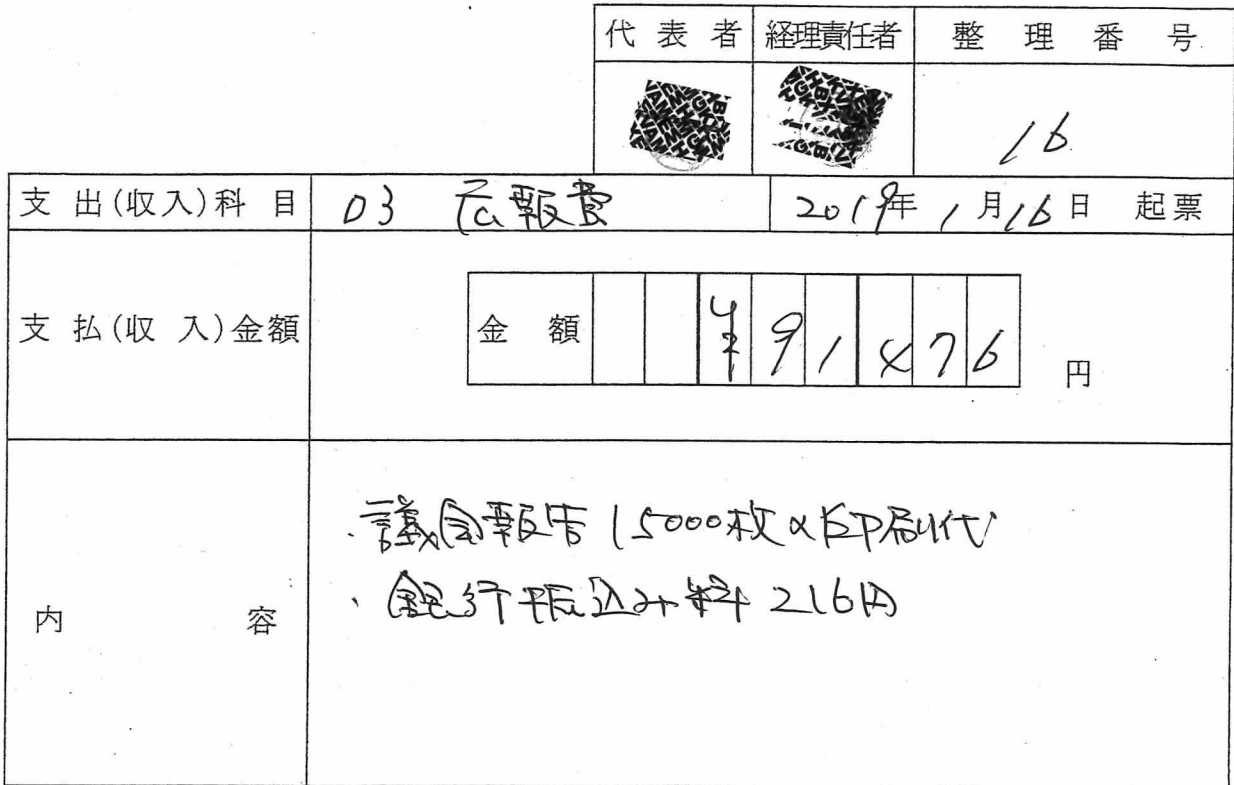 代 表 者 経理責任者 整 理 番 号
16
支 出(収入)科 目 03 広報費 2019年 1月16日 起票
支 払(収 入)金額 金 額 ¥91476 円
内 容
・議会報告15000枚の印刷代
・銀行振込み料 216円